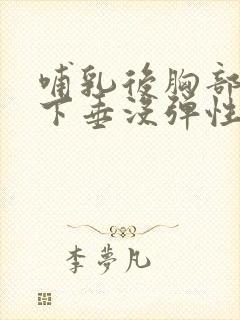 哺乳後胸部
下垂沒彈性
李夢凡